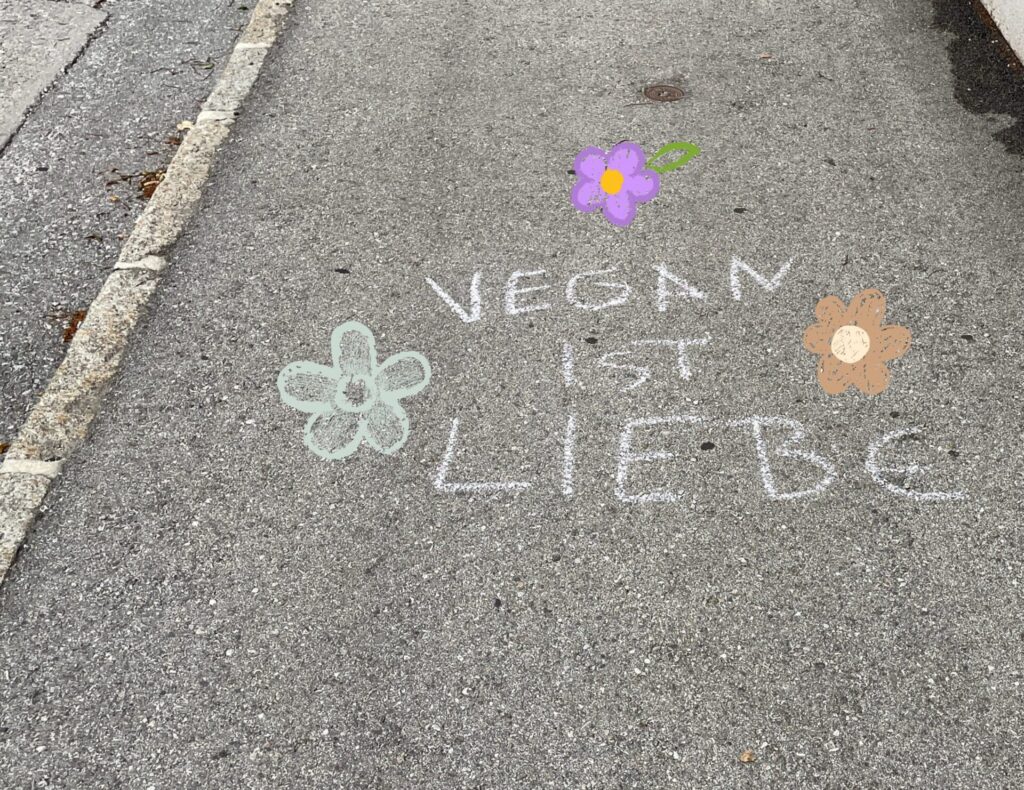 VEGAN
IST
LIEBE